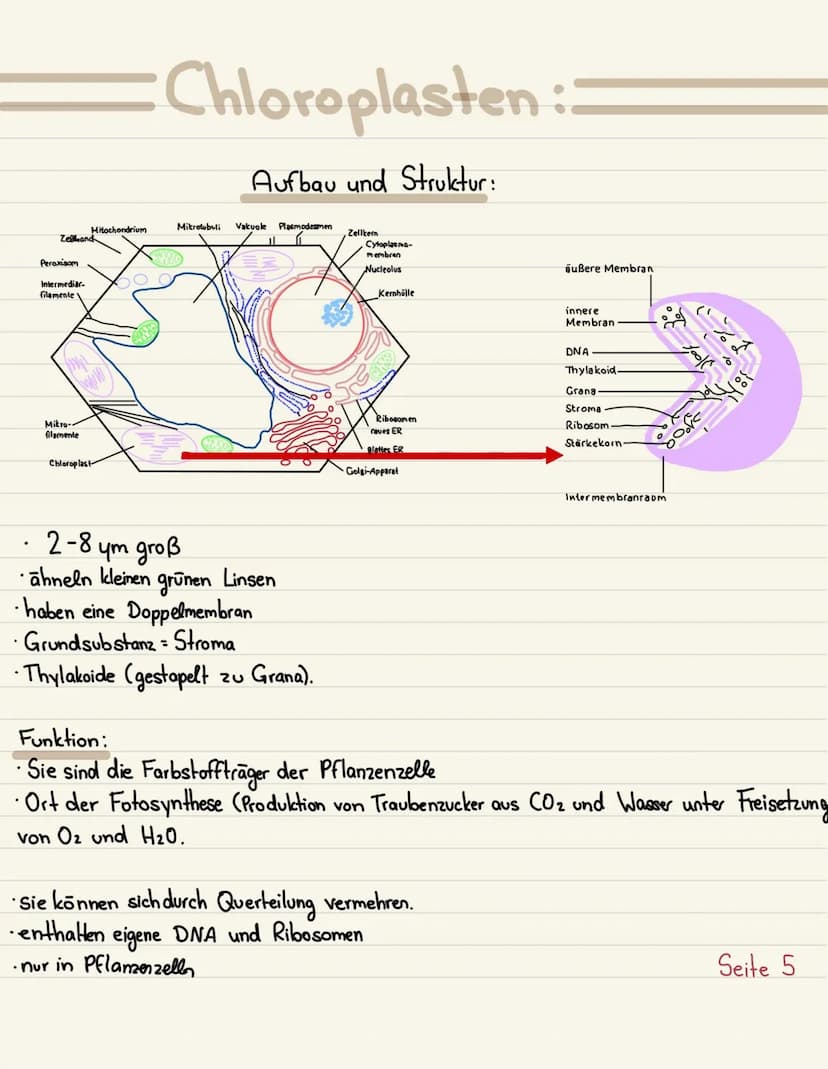 Chloroplasten:
Aufbau und Struktur:
Mitochondrium
Zellwand
Peroxisom
Intermediär-
filamente
Mikrotubuli
Vakuole
Plasmodesmen
Zellkern
Cytoplasma-
membran
Nucleolus
Kernhülle
Mikro-
filamente
Chloroplast
Ribosomen
raues ER
glattes ER
Golgi-Apparat
äußere Membran
innere
Membran
DNA
Thylakoid
Grana
Stroma
Ribosom
Stärkekorn
Intermembranraum
· 2-8 ym groß
· ähneln kleinen grünen Linsen
· haben eine Doppelmembran
· Grundsubstanz = Stroma
· Thylakoide (gestapelt zu Grana).
Funktion:
· Sie sind die Farbstoffträger der Pflanzenzelle
· Ort der Fotosynthese (Produktion von Traubenzucker aus CO2 und Wasser unter Freisetzung
von O2 und H2O.
· sie können sich durch Querteilung vermehren.
· enthalten eigene DNA und Ribosomen
· nur in Pflanzenzelln
Seite 5